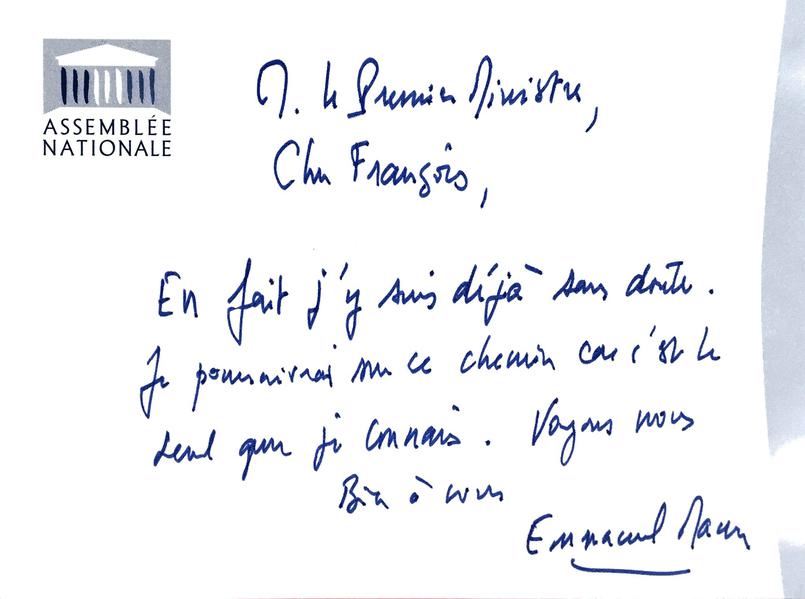 ASSEMBLÉE
NATIONALE
M. le Premier Ministre,
Cher François,
En fait j'y suis déjà sans doute.
Je poursuivrai sur ce chemin car c'est le
seul que je connais. Voyons nous
Bien à vous
Emmanuel Macron